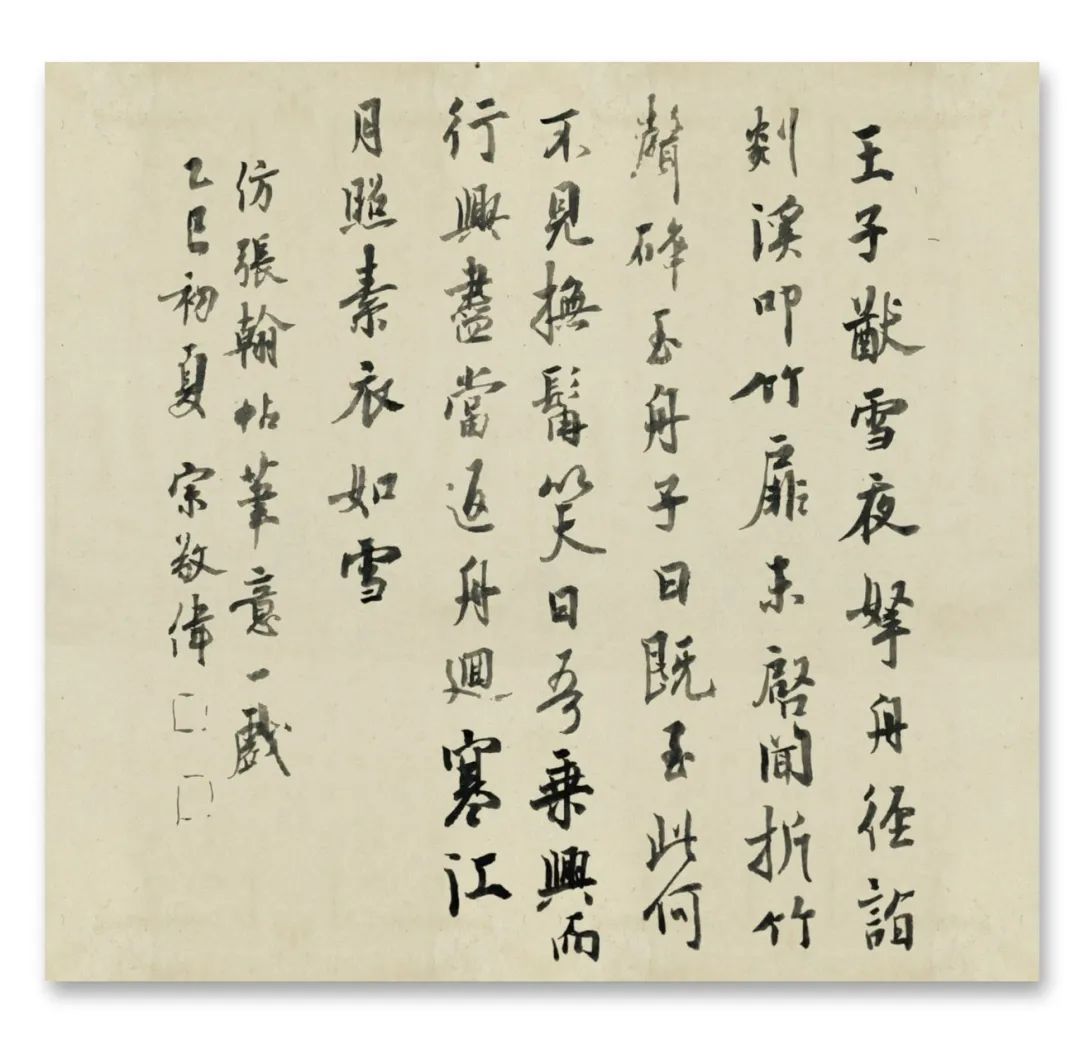 王子猷雪夜拏舟徑詣
剡溪叩竹扉未啓聞折竹
聲碎玉舟子曰既至此何
不見撫髯笑曰吾乗興而
行興盡當返舟迴寒江
月照素衣如雪
仿張翰帖筆意一戲
乙巳初夏 宗敬偉